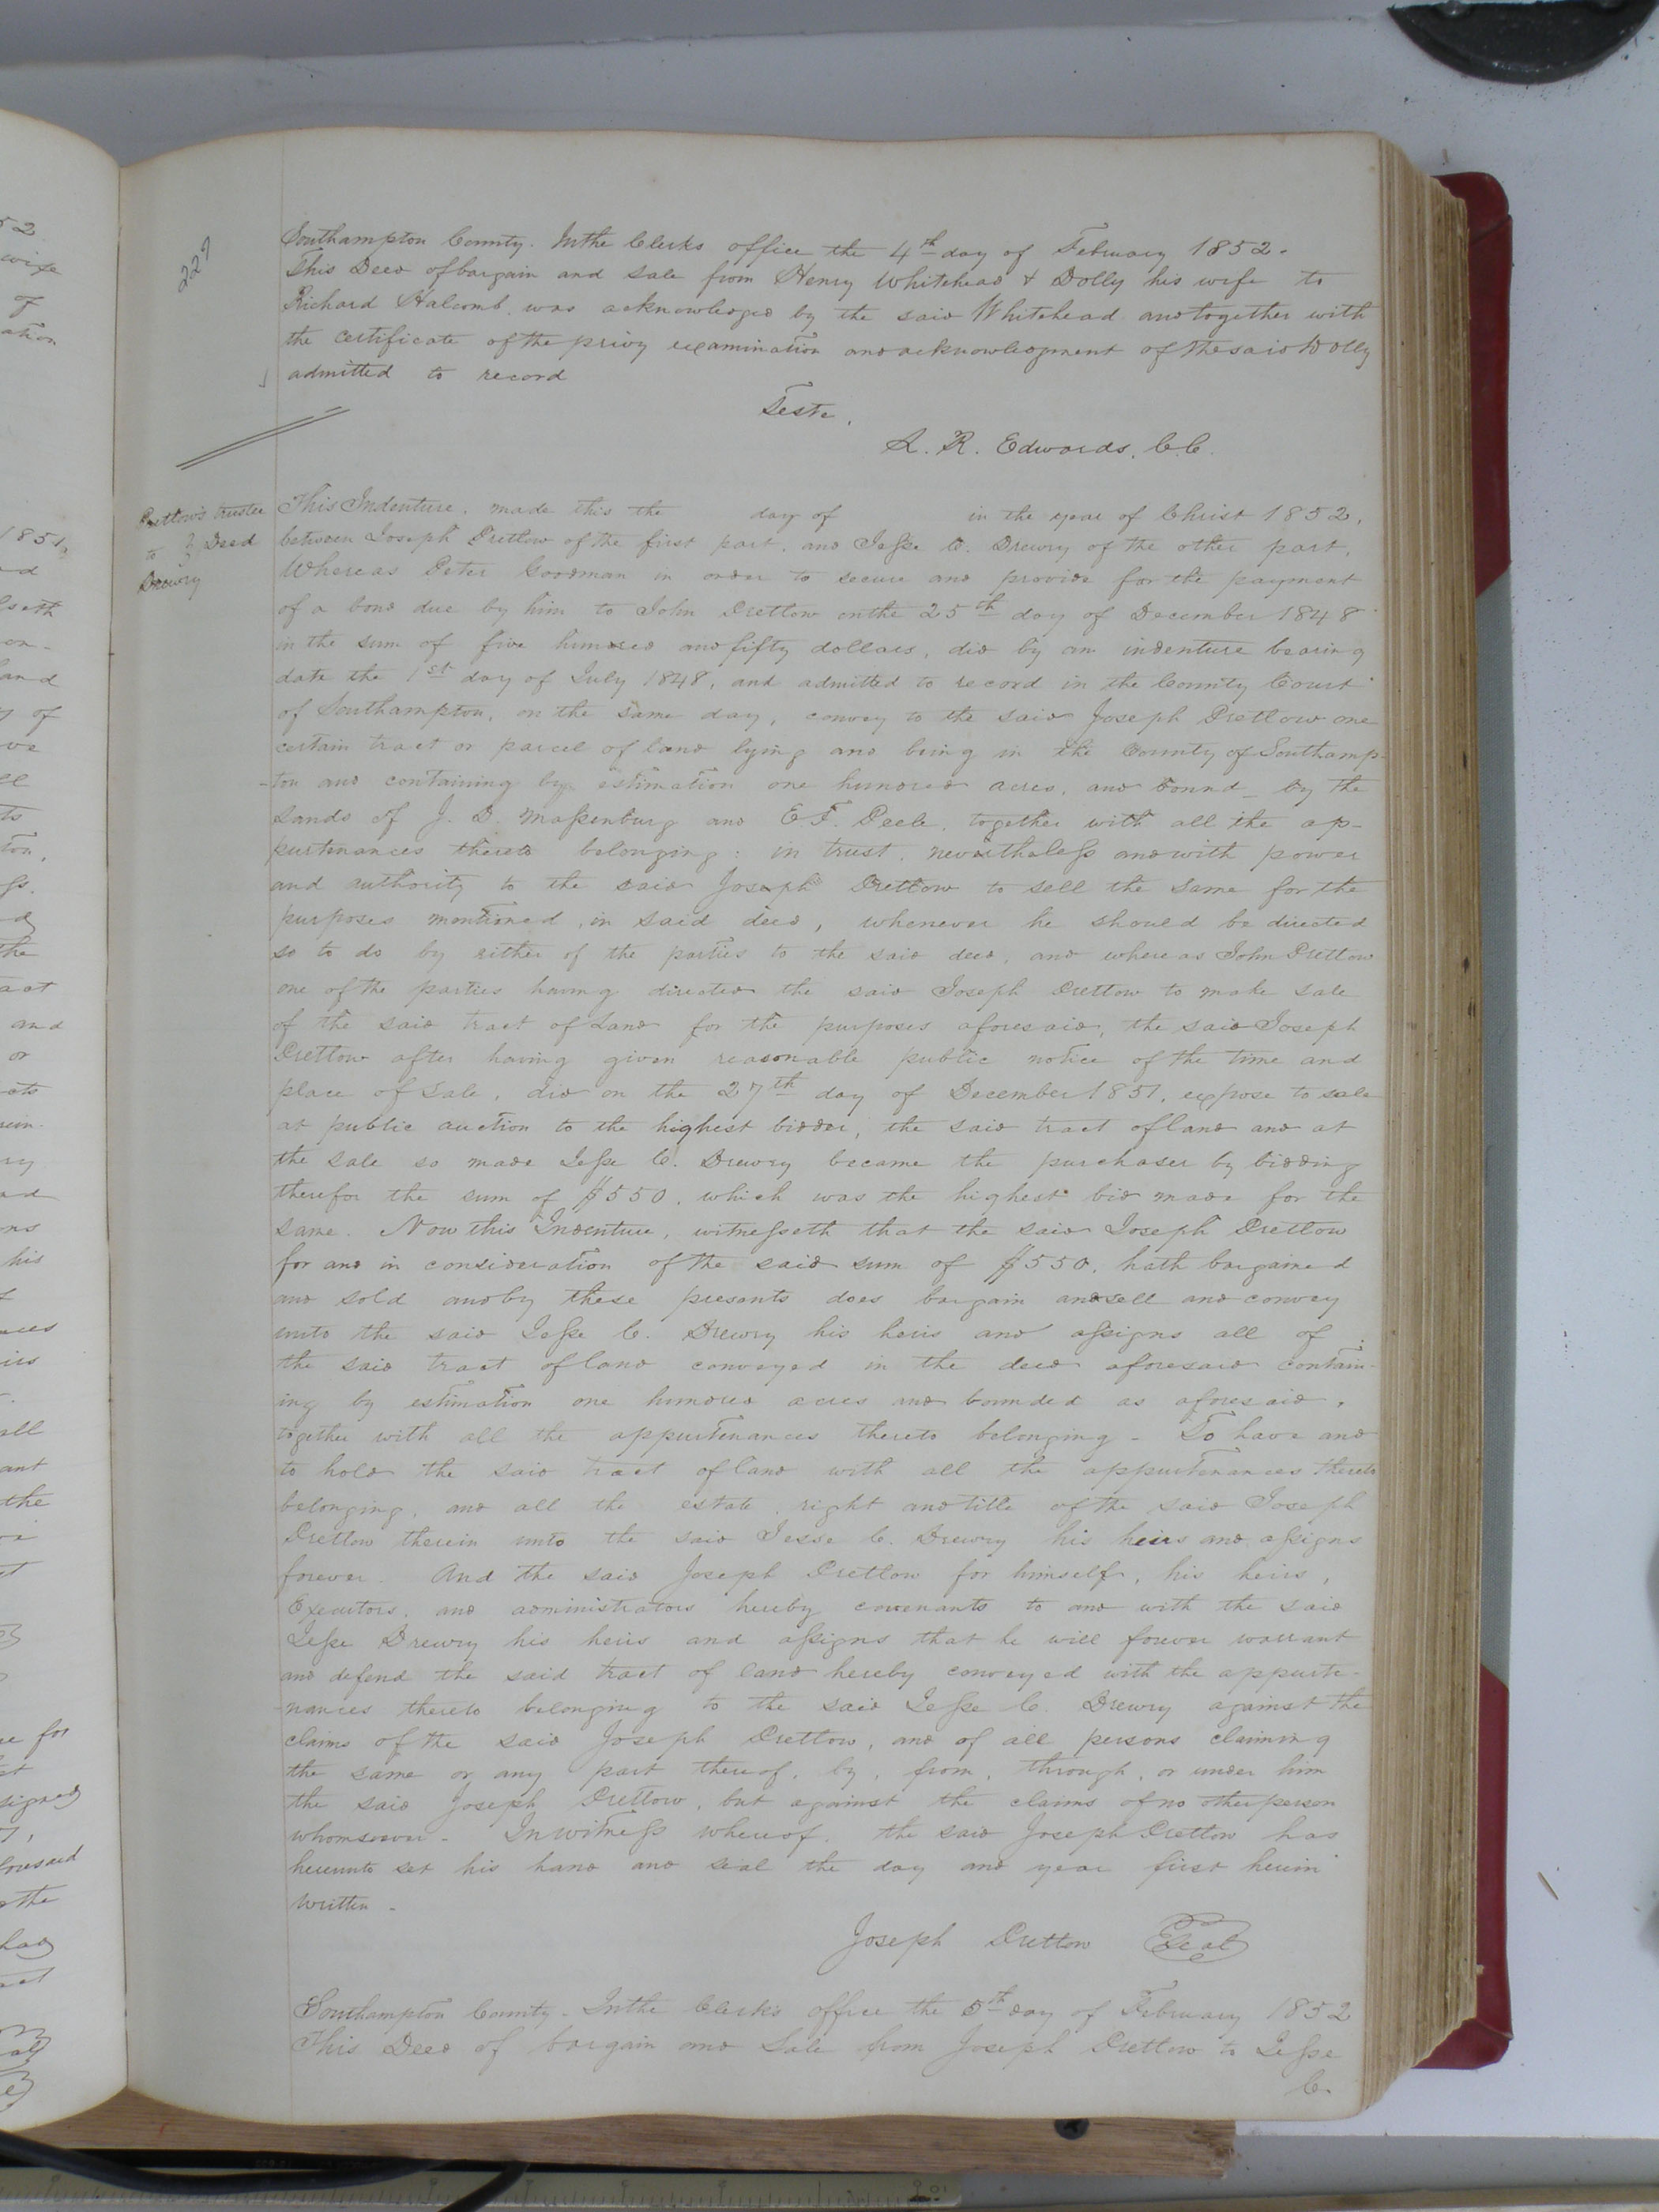 227
Southampton County. In the Clerks office the 4th day of February 1852.
This Deed of bargain and sale from Henry Whitehead & Dolly his wife to
Richard Halcomb, was acknowledged by the said Whitehead and together with
the certificate of the privy examination and acknowledgment of the said Dolly
admitted to record
Teste,
L. R. Edwards, C.C.
Pretlow's trustee
to } Deed
Drewry
This Indenture, made this the day of in the year of Christ 1852,
between Joseph Pretlow of the first part, and Jesse C. Drewry of the other part,
Whereas Peter Goodman in order to secure and provide for the payment
of a bond due by him to John Pretlow on the 25th day of December 1848
in the sum of five hundred and fifty dollars, did by an indenture bearing
date the 1st day of July 1848, and admitted to record in the County Court
of Southampton, on the same day, convey to the said Joseph Pretlow one
certain tract or parcel of land lying and being in the County of Southamp-
-ton and containing by estimation one hundred acres, and bound_ by the
Lands of J. D. Massenburg and E. F. Peele, together with all the ap-
purtenances thereto belonging: in trust, nevertheless and with power
and authority to the said Joseph Pretlow to sell the same for the
purposes mentioned, in said deed, whenever he should be directed
so to do by either of the parties to the said deed, and whereas John Pretlow
one of the parties having directed the said Joseph Pretlow to make sale
of the said tract of Land for the purposes aforesaid, the said Joseph
Pretlow after having given reasonable public notice of the time and
place of Sale, did on the 27th day of December 1851, expose to sale
at public auction to the highest bidder, the said tract of land and at
the Sale so made Jesse C. Drewry became the purchaser by bidding
therefor the sum of $550, which was the highest bid made for the
same. Now this Indenture, witnesseth that the said Joseph Pretlow
for and in consideration of the said sum of $550, hath bargained
and sold and by these presents does bargain and sell and convey
unto the said Jesse C. Drewry his heirs and assigns all of
the said tract of land conveyed in the deed aforesaid contain-
ing by estimation one hundred acres and bounded as aforesaid,
together with all the appurtenances thereto belonging - To have and
to hold the said tract of land with all the appurtenances thereto
belonging, and all the estate, right and title of the said Joseph
Pretlow therein unto the said Jesse C. Drewry his heirs and assigns
forever. And the said Joseph Pretlow for himself, his heirs,
Executors, and administrators hereby covenants to and with the said
Jesse Drewry his heirs and assigns that he will forever warrant
and defend the said tract of land hereby conveyed with the appurte-
-nances thereto belonging to the said Jesse C. Drewry against the
claims of the said Joseph Pretlow, and of all persons claiming
the same or any part thereof, by, from, through, or under him
the said Joseph Pretlow, but against the claims of no other person
whomsoever - In witness whereof, the said Joseph Pretlow has
hereunto set his hand and seal the day and year first herein
written -
Joseph Pretlow Seal
Southampton County - In the Clerk's office the 5th day of February 1852
This Deed of bargain and Sale from Joseph Pretlow to Jesse
C.